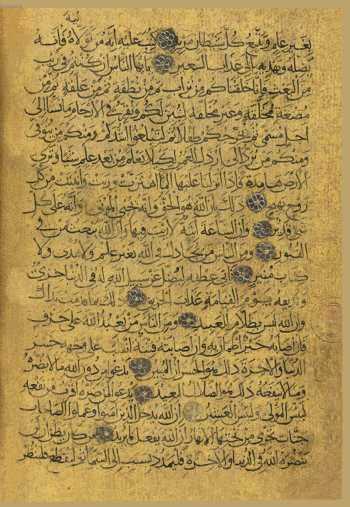 بغير علم ويتبع كل شيطان مريد كتب عليه أنه من تولاه فأنه
يضله ويهديه إلى عذاب السعير يا أيها الناس إن كنتم في ريب
من البعث فإنا خلقناكم من تراب ثم من نطفة ثم من علقة ثم من
مضغة مخلقة وغير مخلقة لنبين لكم ونقر في الأرحام ما نشاء إلى
أجل مسمى ثم نخرجكم طفلا ثم لتبلغوا أشدكم ومنكم من يتوفى
ومنكم من يرد إلى أرذل العمر لكيلا يعلم من بعد علم شيئا وترى
الأرض هامدة فإذا أنزلنا عليها الماء اهتزت وربت وأنبتت من كل
زوج بهيج ذلك بأن الله هو الحق وأنه يحيي الموتى وأنه على كل
شيء قدير وأن الساعة آتية لا ريب فيها وأن الله يبعث من في
القبور ومن الناس من يجادل في الله بغير علم ولا هدى ولا
كتاب منير ثاني عطفه ليضل عن سبيل الله له في الدنيا خزي
ونذيقه يوم القيامة عذاب الحريق ذلك بما قدمت يداك
وأن الله ليس بظلام للعبيد ومن الناس من يعبد الله على حرف
فإن أصابه خير اطمأن به وإن أصابته فتنة انقلب على وجهه خسر
الدنيا والآخرة ذلك هو الخسران المبين يدعو من دون الله ما لا يضره
وما لا ينفعه ذلك هو الضلال البعيد يدعو لمن ضره أقرب من نفعه
لبئس المولى ولبئس العشير إن الله يدخل الذين آمنوا وعملوا الصالحات
جنات تجري من تحتها الأنهار إن الله يفعل ما يريد من كان يظن أن لن
ينصره الله في الدنيا والآخرة فليمدد بسبب إلى السماء ثم ليقطع فلينظر